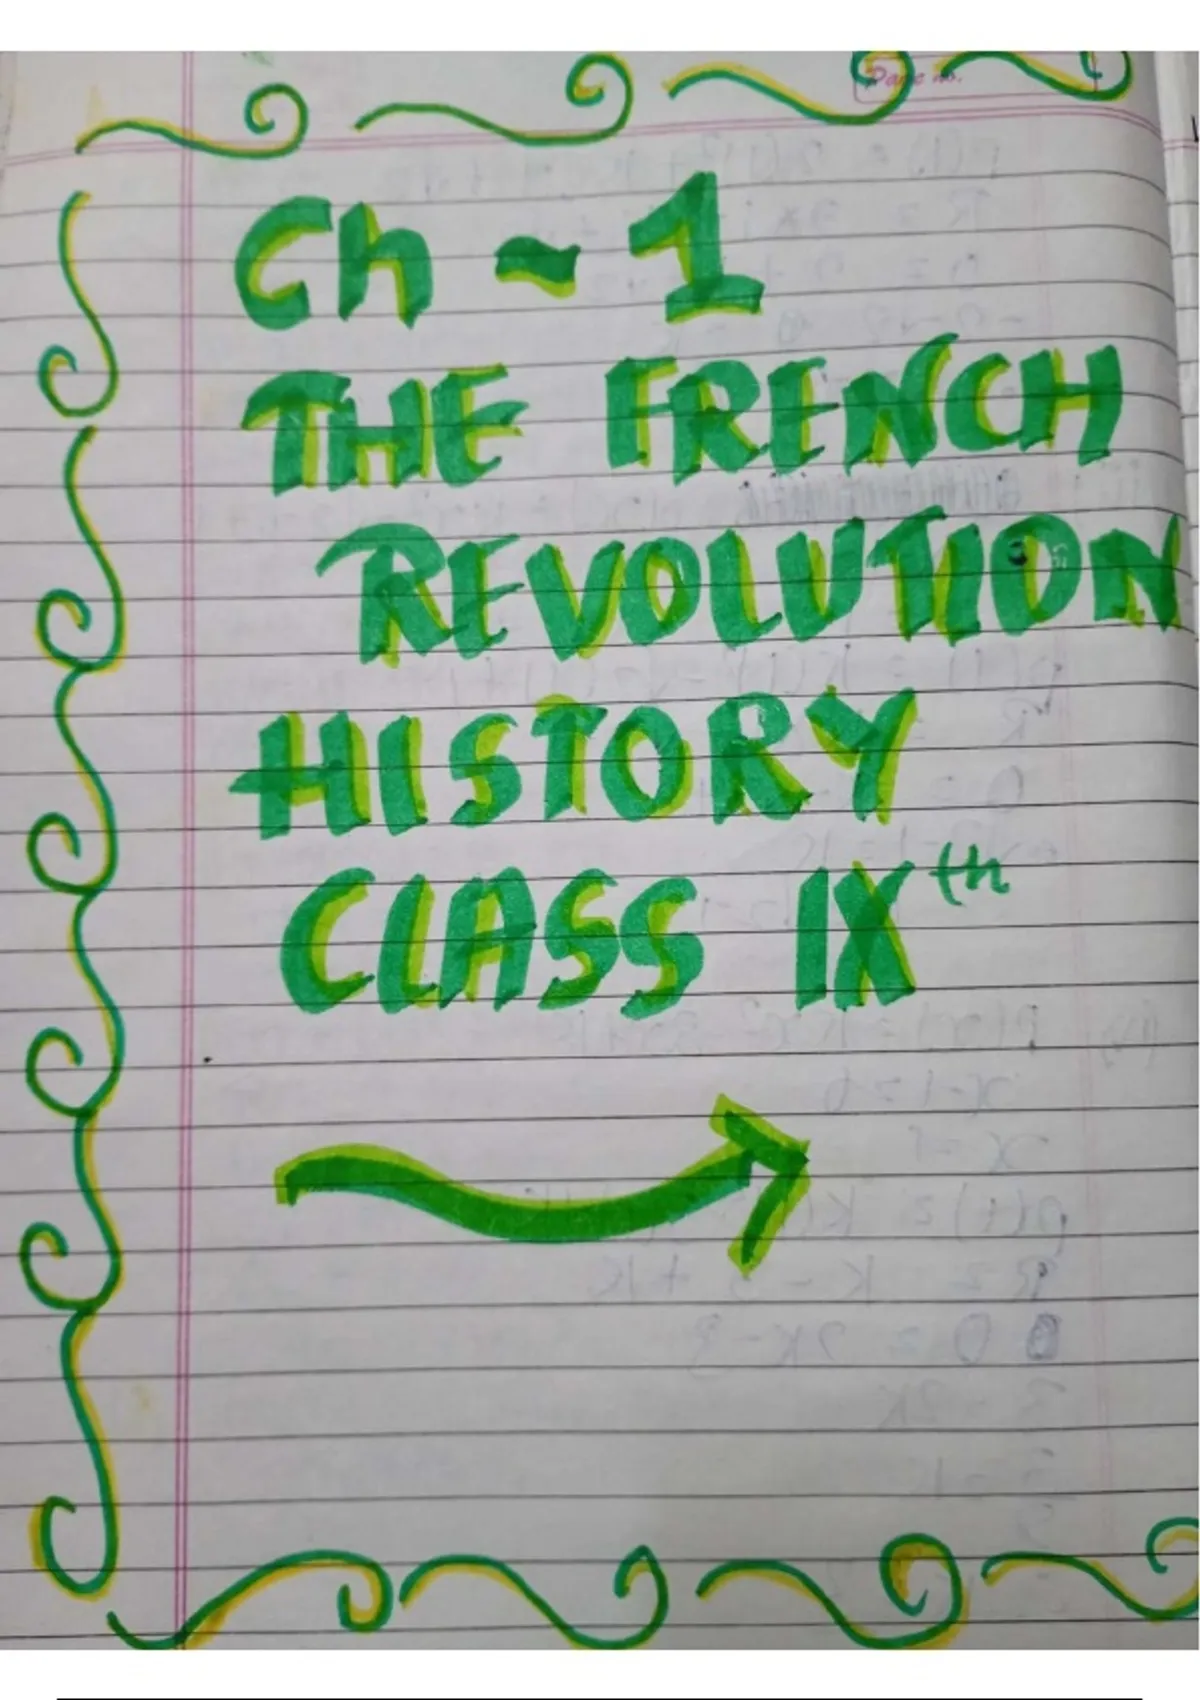 Page no.
Ch - 1
THE FRENCH
REVOLUTION
HISTORY
CLASS IXth